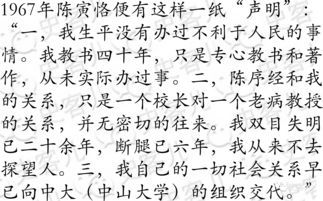 1967年陈寅恪便有这样一纸“声明”:
“一，我生平没有办过不利于人民的事
情。我教书四十年，只是专心教书和著
作，从未实际办过事。二，陈序经和我
的关系，只是一个校长对一个老病教授
的关系，并无密切的往来。我双目失明
已二十余年，断腿已六年，我从来不去
探望人。三，我自己的一切社会关系早
已向中大（中山大学）的组织交代。”